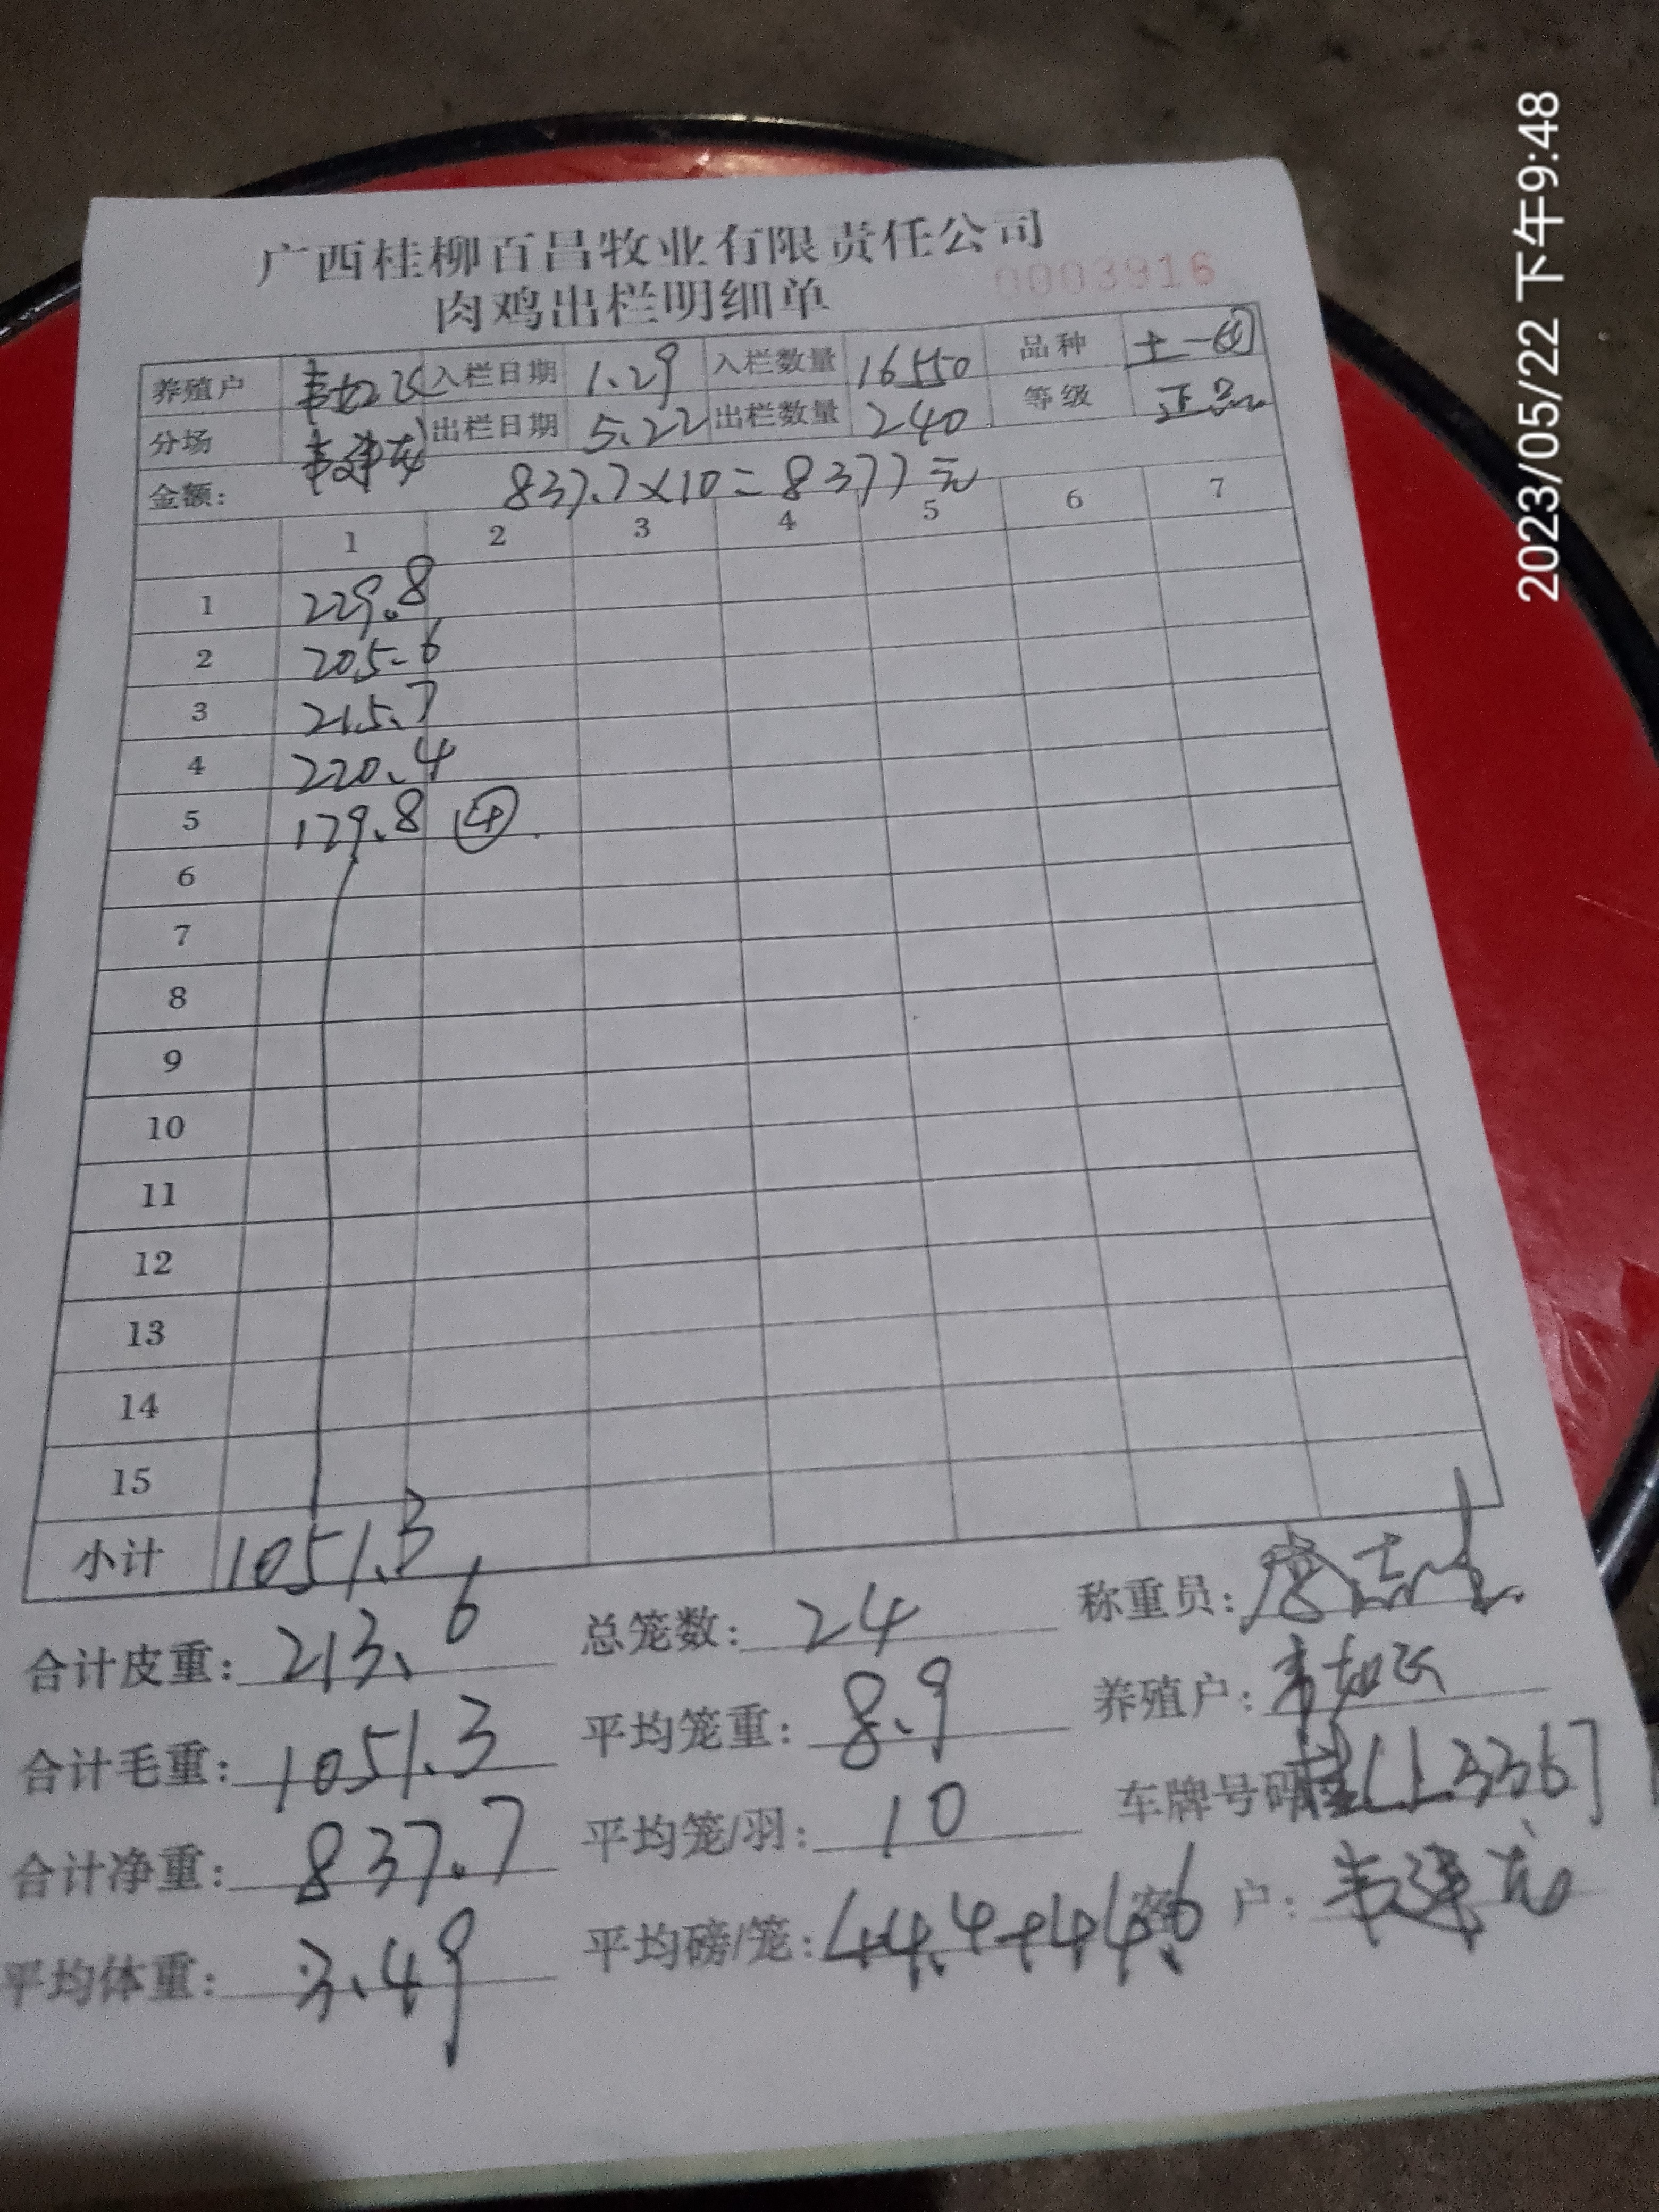 广西桂柳百昌牧业有限责任公司
肉鸡出栏明细单
0003916
养殖户 韦如飞 入栏日期 1.29 入栏数量 16550 品种 土一
分场 韦建龙 出栏日期 5.22 出栏数量 240 等级 正品
金额: 837.7×10=8377元
1 2 3 4 5 6 7
1 229.8
2 205.6
3 215.7
4 220.4
5 179.8 ④
6
7
8
9
10
11
12
13
14
15
小计 1051.3
合计皮重: 213.6 总笼数: 24 称重员:
合计毛重: 1051.3 平均笼重: 8.9 养殖户: 韦如飞
合计净重: 837.7 平均笼/羽: 10 车牌号码
平均体重: 3.49 平均磅/笼: 44.4+44.6 客户: 韦建龙
2023/05/22 下午9:48